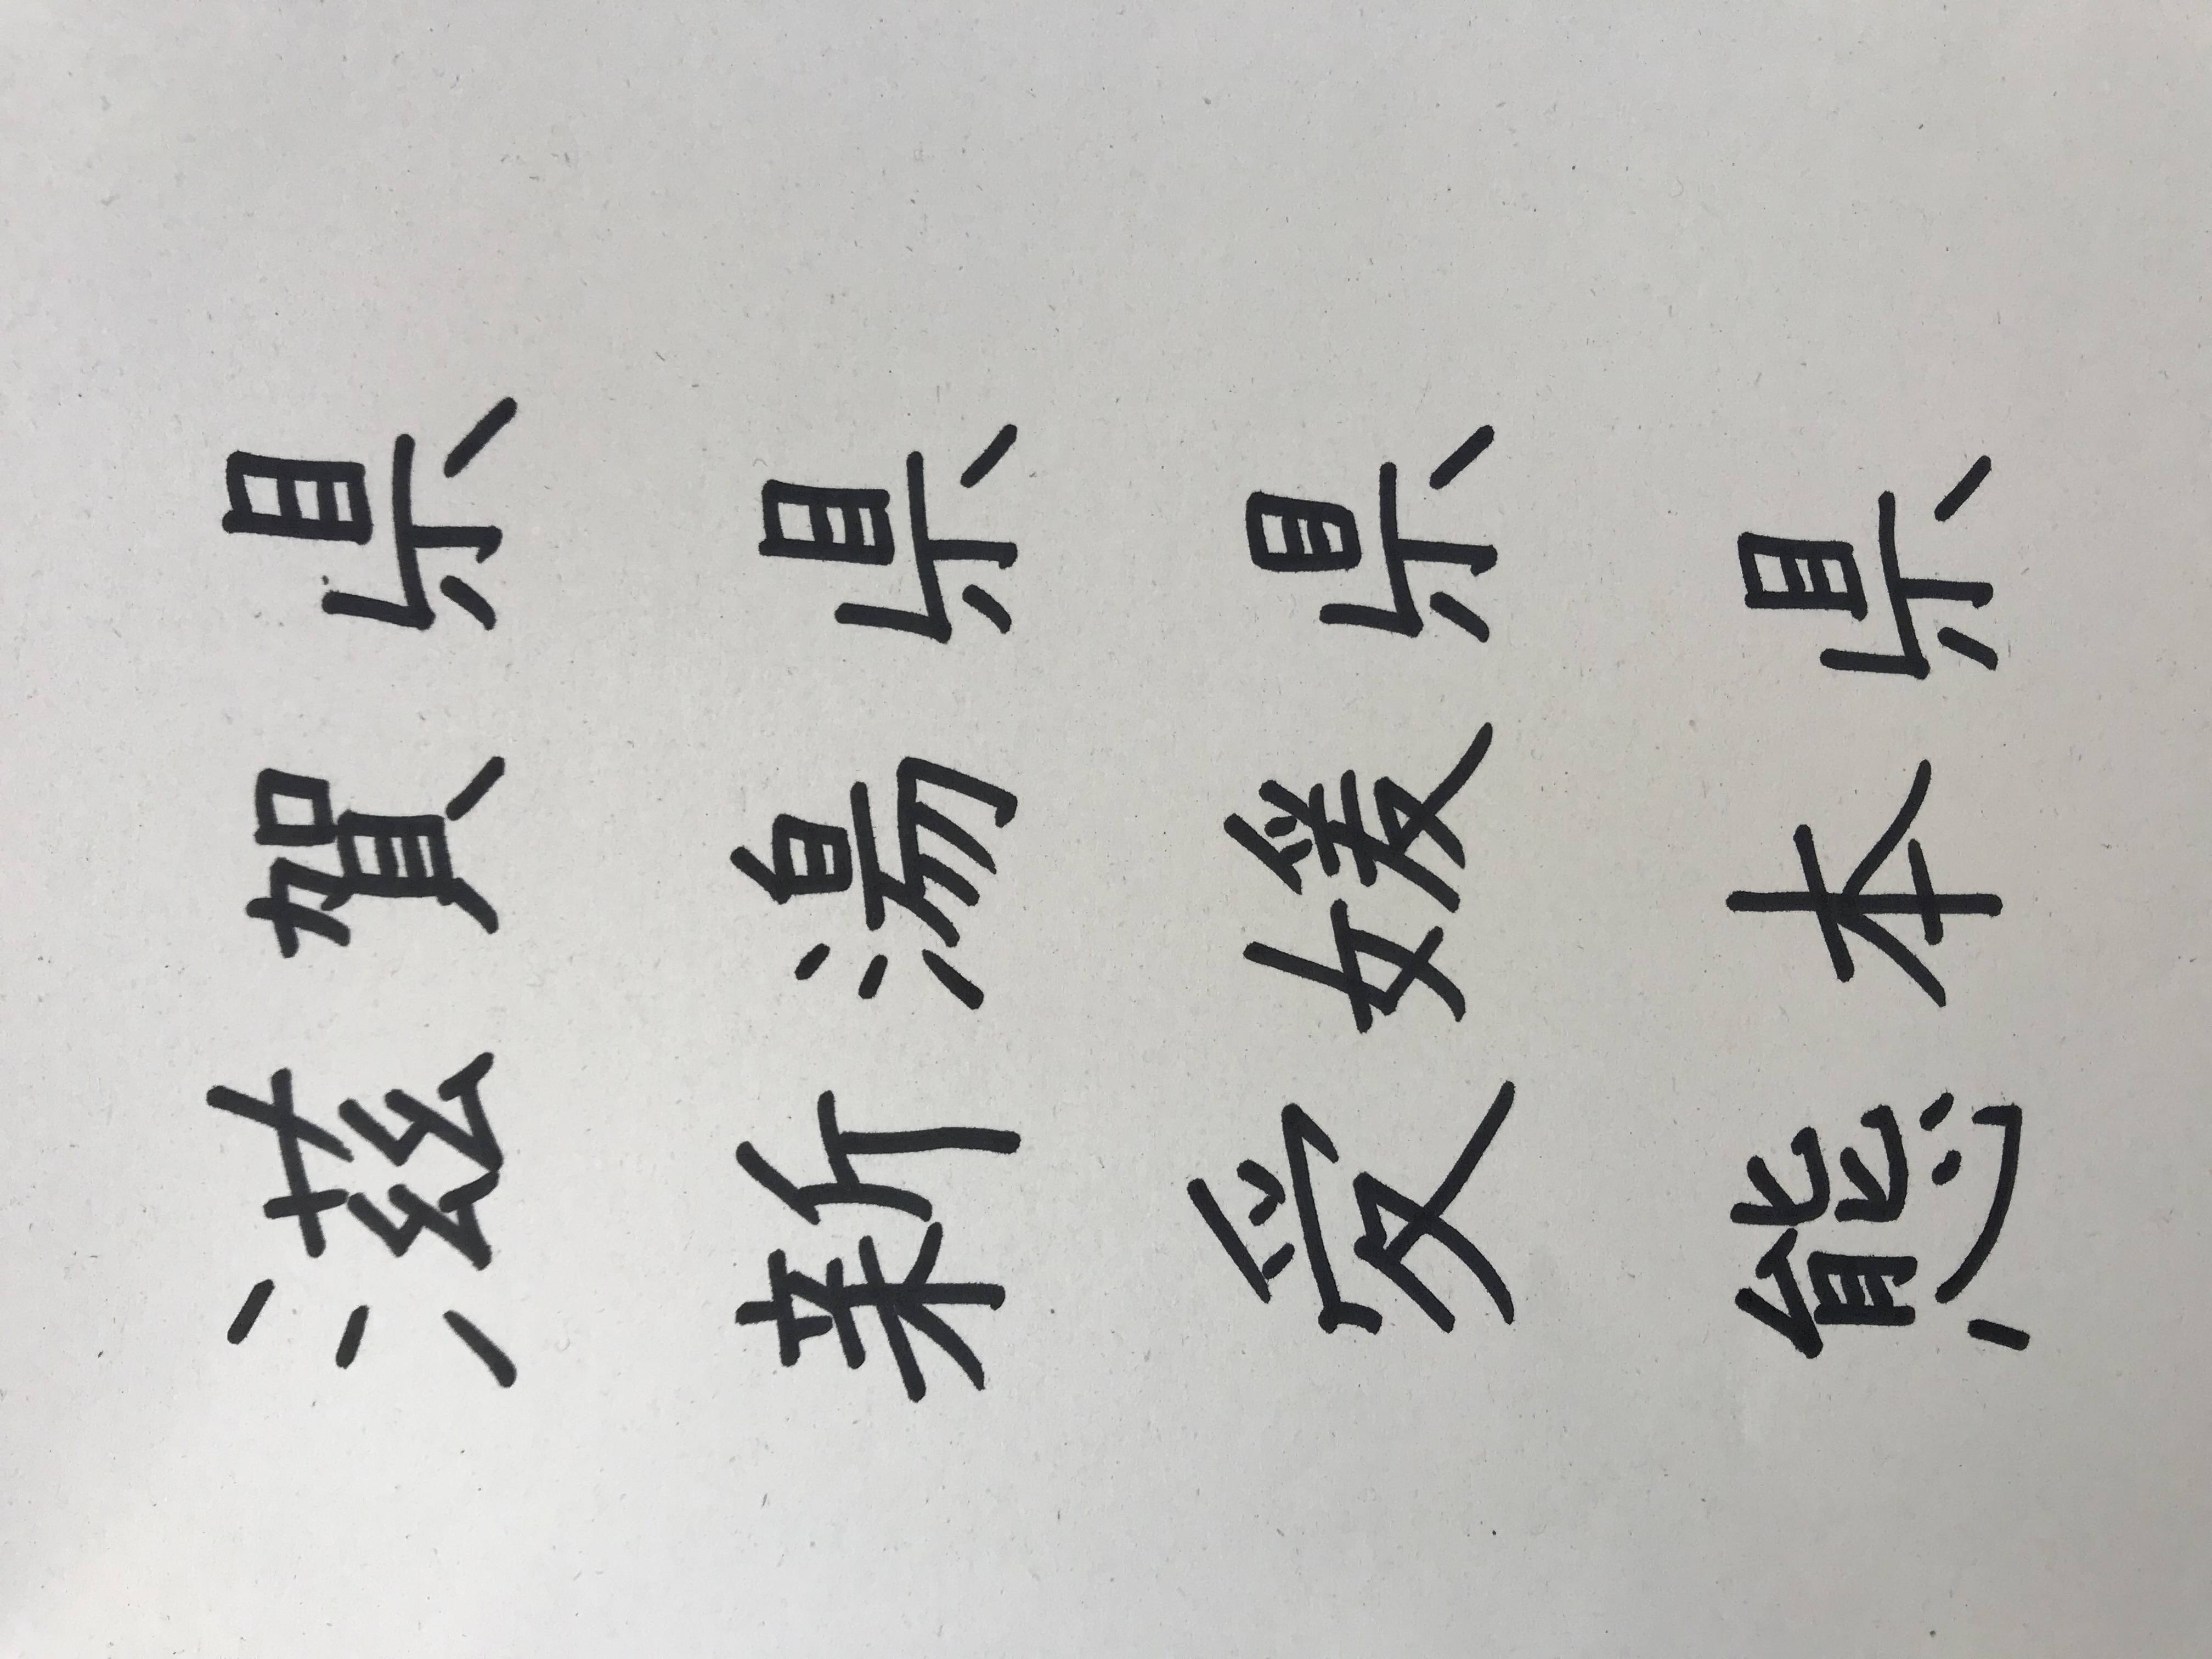 滋賀県
新潟県
愛媛県
態本県